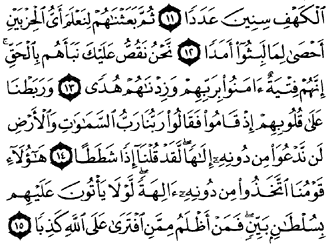 ٱلْكَهْفِ سِنِينَ عَدَدًا ١١ ثُمَّ بَعَثْنَٰهُمْ لِنَعْلَمَ أَىُّ ٱلْحِزْبَيْنِ
أَحْصَىٰ لِمَا لَبِثُوٓا۟ أَمَدًا ١٢ نَّحْنُ نَقُصُّ عَلَيْكَ نَبَأَهُم بِٱلْحَقِّ ۚ
إِنَّهُمْ فِتْيَةٌ ءَامَنُوا۟ بِرَبِّهِمْ وَزِدْنَٰهُمْ هُدًى ١٣ وَرَبَطْنَا
عَلَىٰ قُلُوبِهِمْ إِذْ قَامُوا۟ فَقَالُوا۟ رَبُّنَا رَبُّ ٱلسَّمَٰوَٰتِ وَٱلْأَرْضِ
لَن نَّدْعُوَا۟ مِن دُونِهِۦٓ إِلَٰهًا ۖ لَّقَدْ قُلْنَآ إِذًا شَطَطًا ١٤ هَٰٓؤُلَآءِ
قَوْمُنَا ٱتَّخَذُوا۟ مِن دُونِهِۦٓ ءَالِهَةً ۖ لَّوْلَا يَأْتُونَ عَلَيْهِم
بِسُلْطَٰنٍۭ بَيِّنٍ ۖ فَمَنْ أَظْلَمُ مِمَّنِ ٱفْتَرَىٰ عَلَى ٱللَّهِ كَذِبًا ١٥